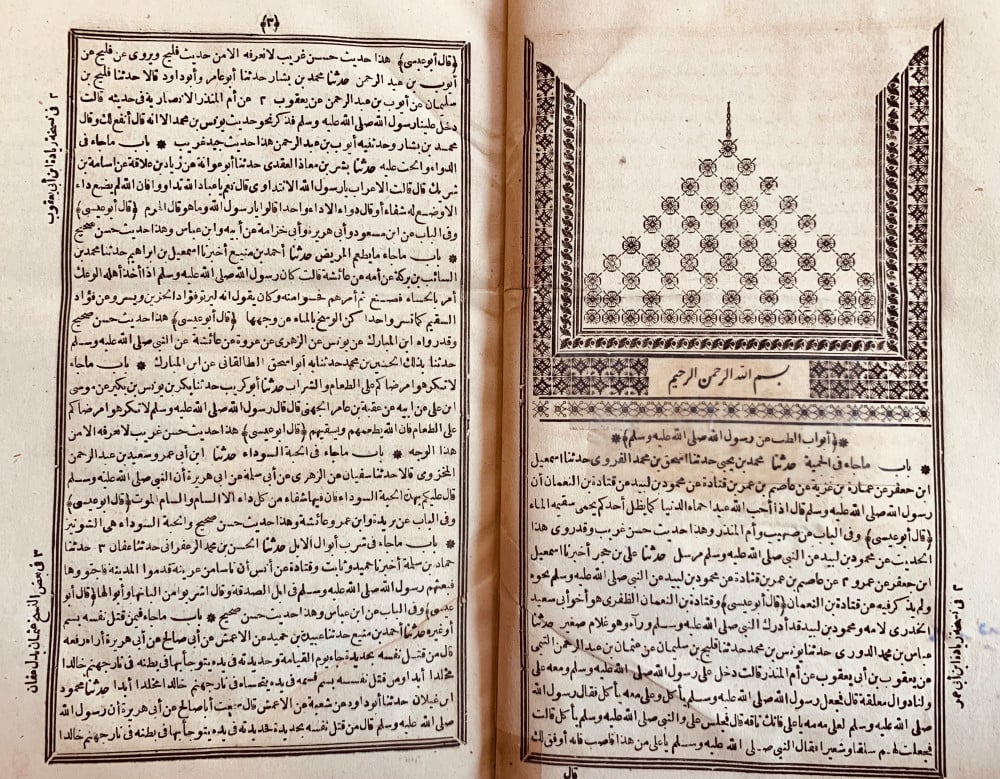 بسم الله الرحمن الرحيم
﴿أبواب الطب عن رسول الله صلى الله عليه وسلم﴾
* باب ماجاء في الحمية حدثنا محمد بن يحيى حدثنا اسحق بن محمد الفروى حدثنا اسمعيل
ابن جعفر عن عمارة بن غزية عن عاصم بن عمر بن قتادة عن محمود بن لبيد عن قتادة بن النعمان أن
رسول الله صلى الله عليه وسلم قال اذا أحب الله عبدا حماه الدنيا كما يظل أحدكم يحمى سقيمه الماء
﴿قال أبو عيسى﴾ وفى الباب عن صهيب وأم المنذر وهذا حديث حسن غريب وقد روى هذا
الحديث عن محمود بن لبيد عن النبى صلى الله عليه وسلم مرسل حدثنا على بن حجر أخبرنا اسمعيل
ابن جعفر عن عمرو ٢ عن عاصم بن عمر بن قتادة عن محمود بن لبيد عن النبى صلى الله عليه وسلم نحوه
ولم يذكر فيه عن قتادة بن النعمان ﴿قال أبو عيسى﴾ وقتادة بن النعمان الظفرى هو أخو أبى سعيد
الخدرى لامه ومحمود بن لبيد قد أدرك النبى صلى الله عليه وسلم ورآه وهو غلام صغير حدثنا
عباس بن محمد الدورى حدثنا يونس بن محمد حدثنا فليح بن سليمان عن عثمان بن عبد الرحمن التيمى
عن يعقوب بن أبى يعقوب عن أم المنذر قالت دخل على رسول الله صلى الله عليه وسلم ومعه على
ولنا دوال معلقة قال فجعل رسول الله صلى الله عليه وسلم يأكل وعلى معه يأكل فقال رسول الله
صلى الله عليه وسلم لعلى مه مه ياعلى فانك ناقه قال فجلس على والنبى صلى الله عليه وسلم يأكل قالت
فجعلت لهم سلقا وشعيرا فقال النبى صلى الله عليه وسلم ياعلى من هذا فاصب فانه أوفق لك
قال
٢ فى نسخة زيادة ابن أبى عمر
﴿٣﴾
﴿قال أبو عيسى﴾ هذا حديث حسن غريب لانعرفه الا من حديث فليح ويروى عن فليح عن
أيوب بن عبد الرحمن حدثنا محمد بن بشار حدثنا أبو عامر وأبو داود قالا حدثنا فليح بن
سليمان عن أيوب بن عبد الرحمن عن يعقوب ٢ عن أم المنذر الانصارية فى حديثه قالت
دخل علينا رسول الله صلى الله عليه وسلم فذكر نحو حديث يونس بن محمد الا انه قال أنفع لك وقال
محمد بن بشار وحدثنيه أيوب بن عبد الرحمن هذا حديث جيد غريب * باب ماجاء فى
الدواء والحث عليه حدثنا بشر بن معاذ العقدى حدثنا أبو عوانة عن زياد بن علاقة عن اسامة بن
شريك قال قالت الاعراب يارسول الله الانتداوى قال نعم ياعباد الله تداووا فان الله لم يضع داء
الا وضع له شفاء أو قال دواء الاداء واحدا قالوا يارسول الله وما هو قال الهرم ﴿قال أبو عيسى﴾
وفى الباب عن ابن مسعود وأبى هريرة وأبى خزامة عن أبيه وابن عباس وهذا حديث حسن صحيح
* باب ماجاء ما يطعم المريض حدثنا أحمد بن منيع أخبرنا اسمعيل بن ابراهيم حدثنا محمد بن
السائب بن بركة عن أمه عن عائشة قالت كان رسول الله صلى الله عليه وسلم اذا أخذ أهله الوعك
أمر بالحساء فصنع ثم أمرهم فحسوا منه وكان يقول انه ليرتو فؤاد الحزين ويسرو عن فؤاد
السقيم كما تسرو احدا كن الوسخ بالماء عن وجهها ﴿قال أبو عيسى﴾ هذا حديث حسن صحيح
وقد رواه ابن المبارك عن يونس عن الزهرى عن عروة عن عائشة عن النبى صلى الله عليه وسلم
حدثنا بذلك الحسين بن محمد حدثنا به أبو اسحق الطالقانى عن ابن المبارك * باب ماجاء
لاتكرهوا مرضاكم على الطعام والشراب حدثنا أبو كريب حدثنا بكر بن يونس بن بكير عن موسى
ابن على عن أبيه عن عقبة بن عامر الجهنى قال قال رسول الله صلى الله عليه وسلم لاتكرهوا مرضاكم
على الطعام فان الله يطعمهم ويسقيهم ﴿قال أبو عيسى﴾ هذا حديث حسن غريب لانعرفه الا من
هذا الوجه * باب ماجاء فى الحبة السوداء حدثنا ابن أبى عمر وسعيد بن عبد الرحمن
المخزومى قالا حدثنا سفيان عن الزهرى عن أبى سلمة عن أبى هريرة أن النبى صلى الله عليه وسلم
قال عليكم بهذه الحبة السوداء فان فيها شفاء من كل داء الا السام والسام الموت ﴿قال أبو عيسى﴾
وفى الباب عن بريدة وابن عمر وعائشة وهذا حديث حسن صحيح والحبة السوداء هى الشونيز
* باب ماجاء فى شرب أبوال الابل حدثنا الحسن بن محمد الزعفرانى حدثنا عفان ٣ حدثنا
حماد بن سلمة أخبرنا حميد وثابت وقتادة عن أنس أن ناسا من عرينة قدموا المدينة فاجتووها
فبعثهم رسول الله صلى الله عليه وسلم فى ابل الصدقة وقال اشربوا من البانها وأبوالها ﴿قال أبو
عيسى﴾ وفى الباب عن ابن عباس وهذا حديث حسن صحيح * باب ماجاء فيمن قتل نفسه بسم
أو غيره حدثنا أحمد بن منيع حدثنا عبيدة بن حميد عن الاعمش عن أبى صالح عن أبى هريرة أراه رفعه
قال من قتل نفسه بحديدة جاء يوم القيامة وحديدته فى يده يتوجأ بها فى بطنه فى نار جهنم خالدا
مخلدا أبدا ومن قتل نفسه بسم فسمه فى يده يتحساه فى نار جهنم خالدا مخلدا أبدا حدثنا محمود
ابن غيلان حدثنا أبو داود عن شعبة عن الاعمش قال سمعت أبا صالح عن أبى هريرة أن رسول الله
صلى الله عليه وسلم قال من قتل نفسه بحديدة فحديدته فى يده يتوجأ بها فى بطنه فى نار جهنم خالدا
٢ فى نسخة زيادة ابن أبى يعقوب
٣ فى بعض النسخ عثمان بدل عفان